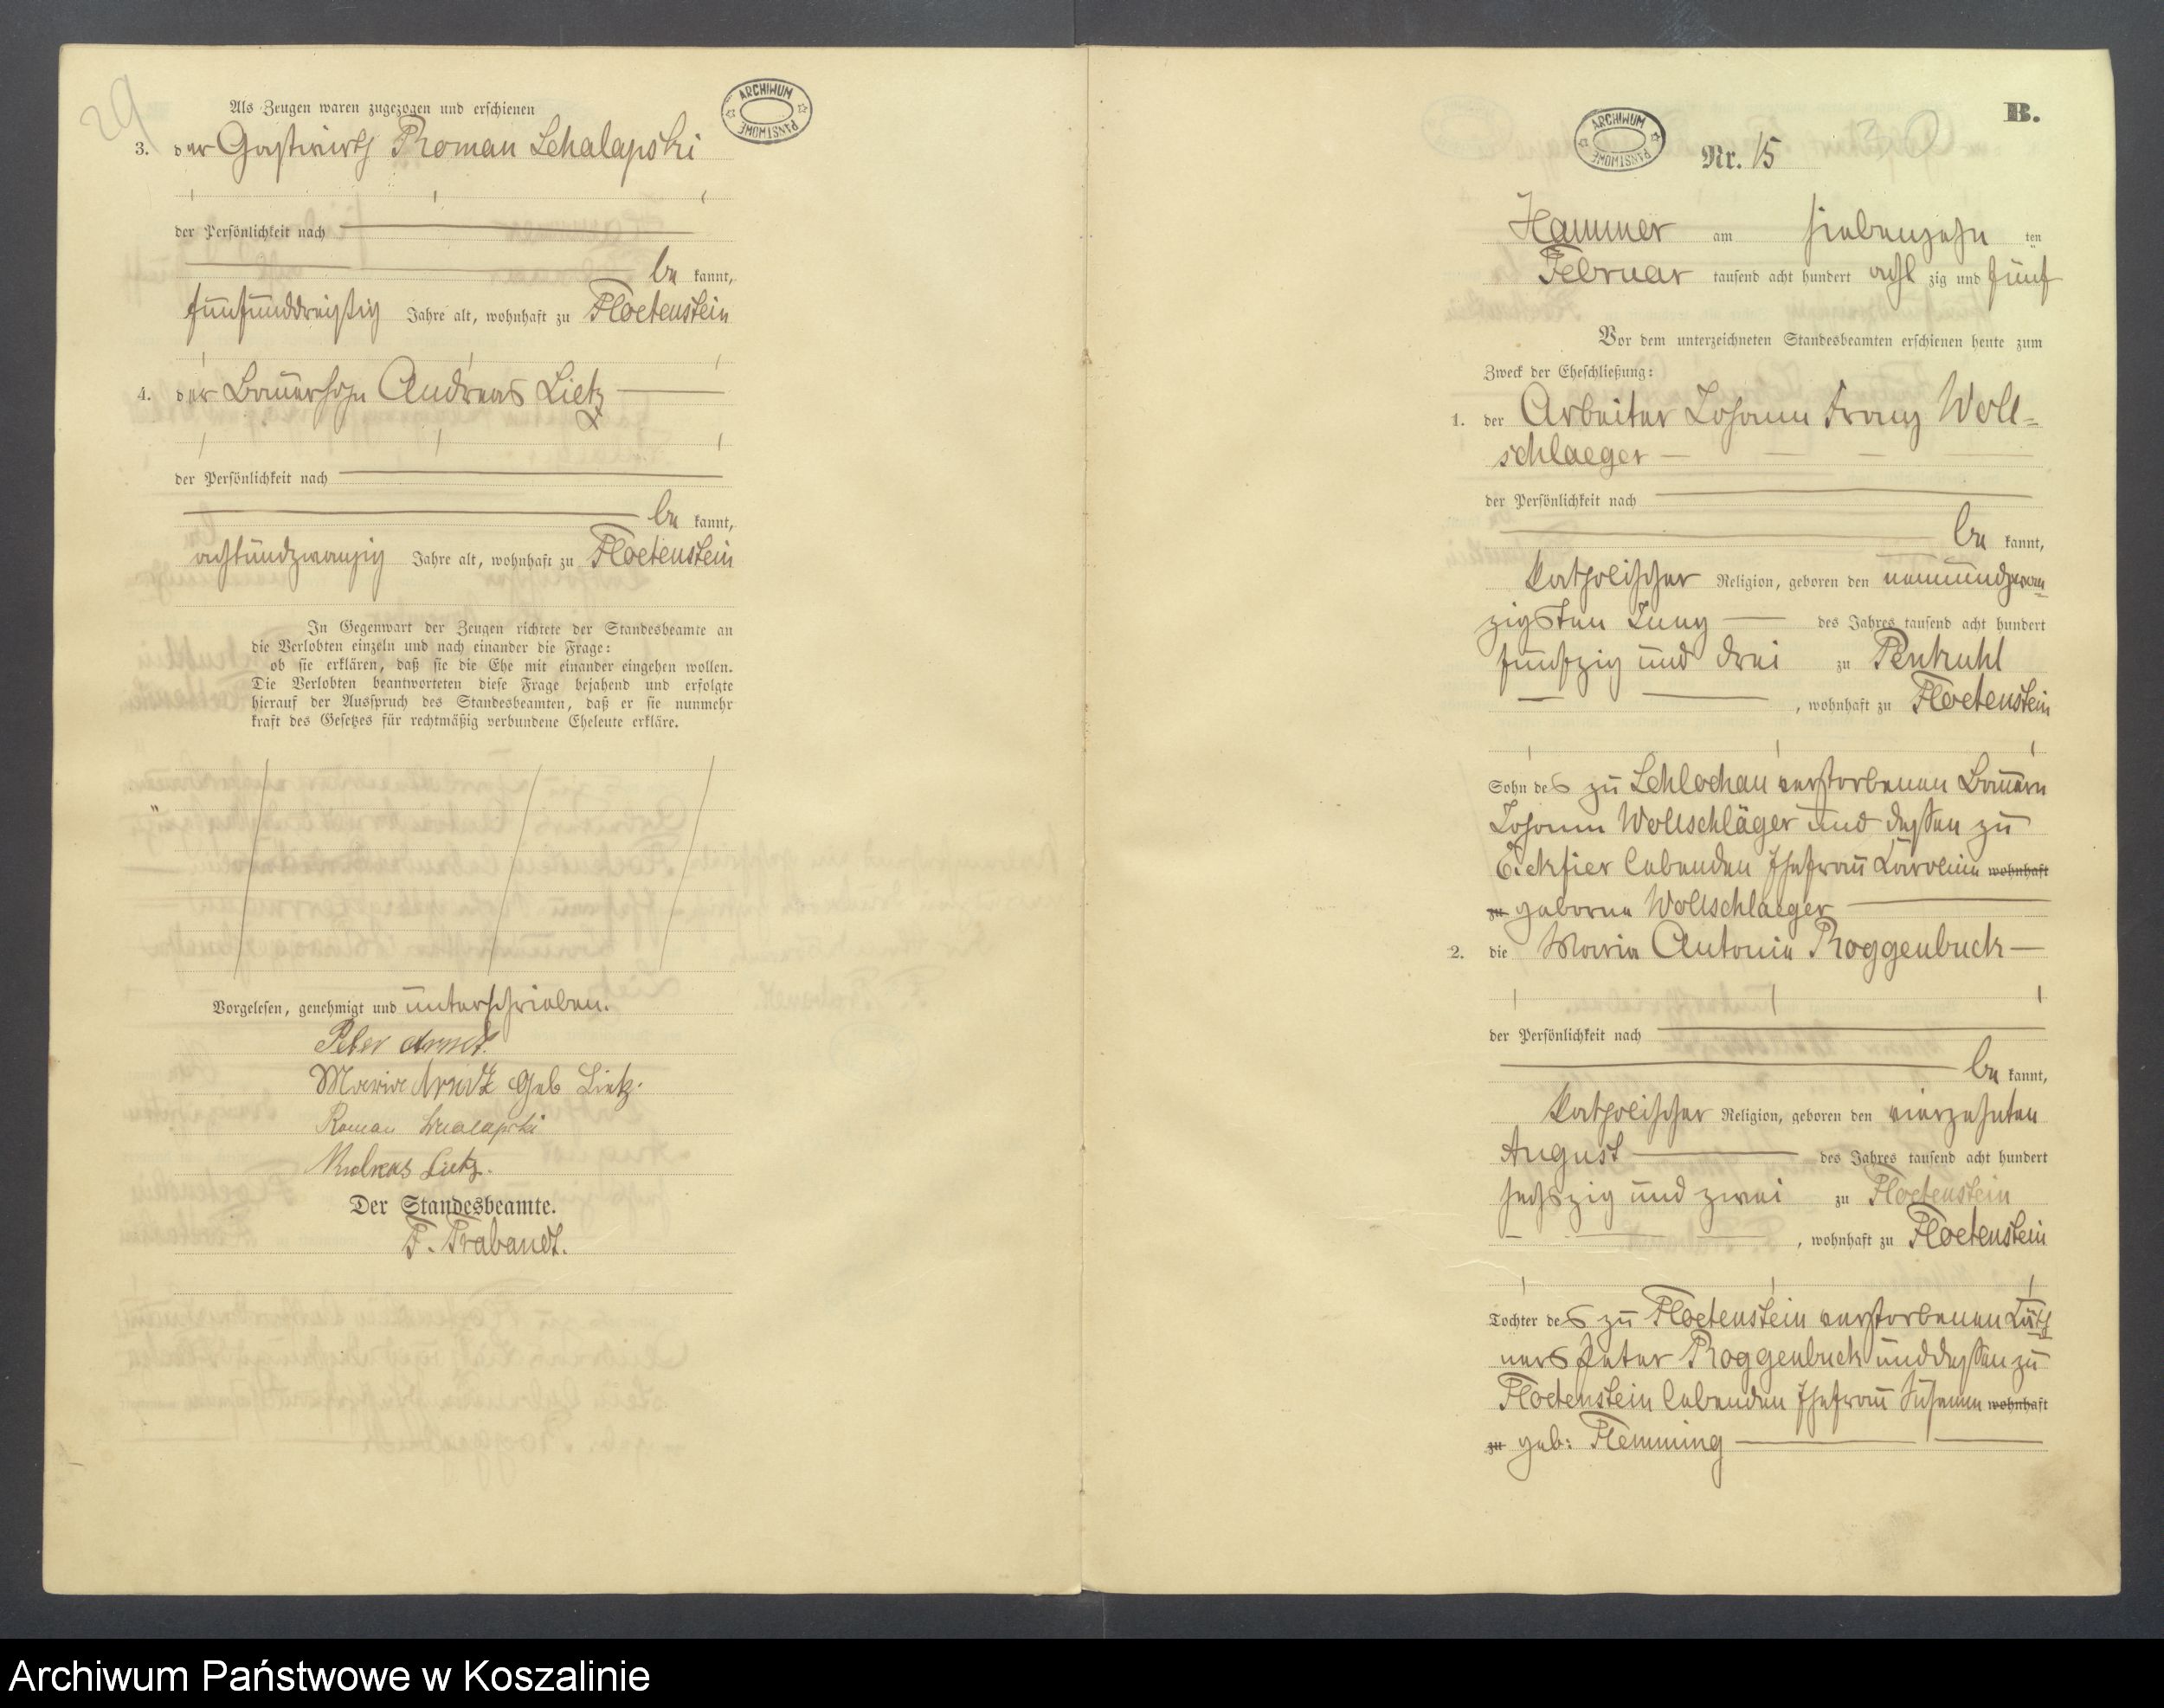 29
Als Zeugen waren zugezogen und erschienen
3. der Gastwirth Roman Schalapski
der Persönlichkeit nach
be kannt,
fünfunddreißig Jahre alt, wohnhaft zu Floetenstein
4. der Bauersohn Andreas Lietz
der Persönlichkeit nach
be kannt,
achtundzwanzig Jahre alt, wohnhaft zu Floetenstein
In Gegenwart der Zeugen richtete der Standesbeamte an
die Verlobten einzeln und nach einander die Frage:
ob sie erklären, daß sie die Ehe mit einander eingehen wollen.
Die Verlobten beantworteten diese Frage bejahend und erfolgte
hierauf der Ausspruch des Standesbeamten, daß er sie nunmehr
kraft des Gesetzes für rechtmäßig verbundene Eheleute erkläre.
Vorgelesen, genehmigt und unterschrieben.
Peter Arndt.
Maria Arndt geb Lietz.
Roman Schalapski
Andreas Lietz.
Der Standesbeamte.
F. Trabandt.
ARCHIWUM PAŃSTWOWE
B.
ARCHIWUM PAŃSTWOWE
Nr. 15
Hammer am siebenzehn ten
Februar tausend acht hundert acht zig und fünf
Vor dem unterzeichneten Standesbeamten erschienen heute zum
Zweck der Eheschließung:
1. der Arbeiter Johann Franz Woll=
schlaeger
der Persönlichkeit nach
be kannt,
katholischer Religion, geboren den neunundzwan=
zigsten Juny des Jahres tausend acht hundert
fünfzig und drei zu Penkuhl
, wohnhaft zu Floetenstein
Sohn des zu Schlochau verstorbenen Bauern
Johann Wollschläger und dessen zu
Eickfier lebenden Ehefrau Karoline wohnhaft
zu geborne Wollschlaeger
2. die Maria Antonie Roggenbuck
der Persönlichkeit nach
be kannt,
katholischer Religion, geboren den vierzehnten
August des Jahres tausend acht hundert
sechszig und zwei zu Floetenstein
, wohnhaft zu Floetenstein
Tochter des zu Floetenstein verstorbenen Käth=
ners Peter Roggenbuck und dessen zu
Floetenstein lebenden Ehefrau Susanna wohnhaft
zu geb: Flemming
Archiwum Państwowe w Koszalinie